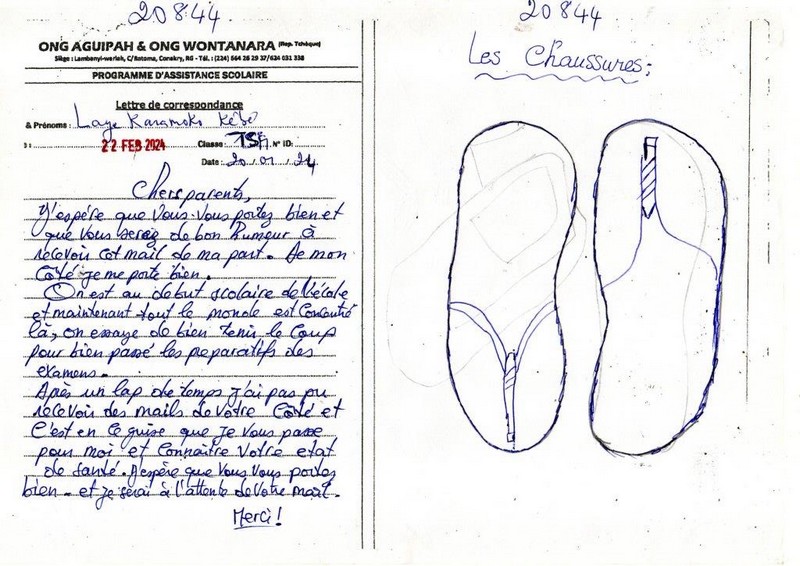 20844
ONG AGUIPAH & ONG WONTANARA (Rep. Tchèque)
Siège : Lambanyi-wariah, C/Ratoma, Conakry, RG - Tél. : (224) 664 26 29 37/624 031 338
PROGRAMME D'ASSISTANCE SCOLAIRE
Lettre de correspondance
& Prénoms : Laye Karamoko Kébé
22 FEB 2024 Classe : TSE N° ID:
Date : 20 / 01 / 24
Chers parents,
J'espére que Vous-Vous portez bien et
que Vous serez de bon Humeur à
recevoir cet mail de ma part. De mon
Côté je me porte bien.
On est au debut scolaire de l'école
et maintenant tout le monde est Concentré
là, on essaye de bien tenir le Coup
pour bien passé les preparatifs des
examens.
Après un lap de temps j'ai pas pu
recevoir des mails de votre Côté et
C'est en ce guise que je vous passe
pour moi et Connaitre Votre etat
de santé. J'espère que Vous Vous portez
bien. et je serai à l'attente de Votre mail.
Merci !
20844
Les Chaussures :